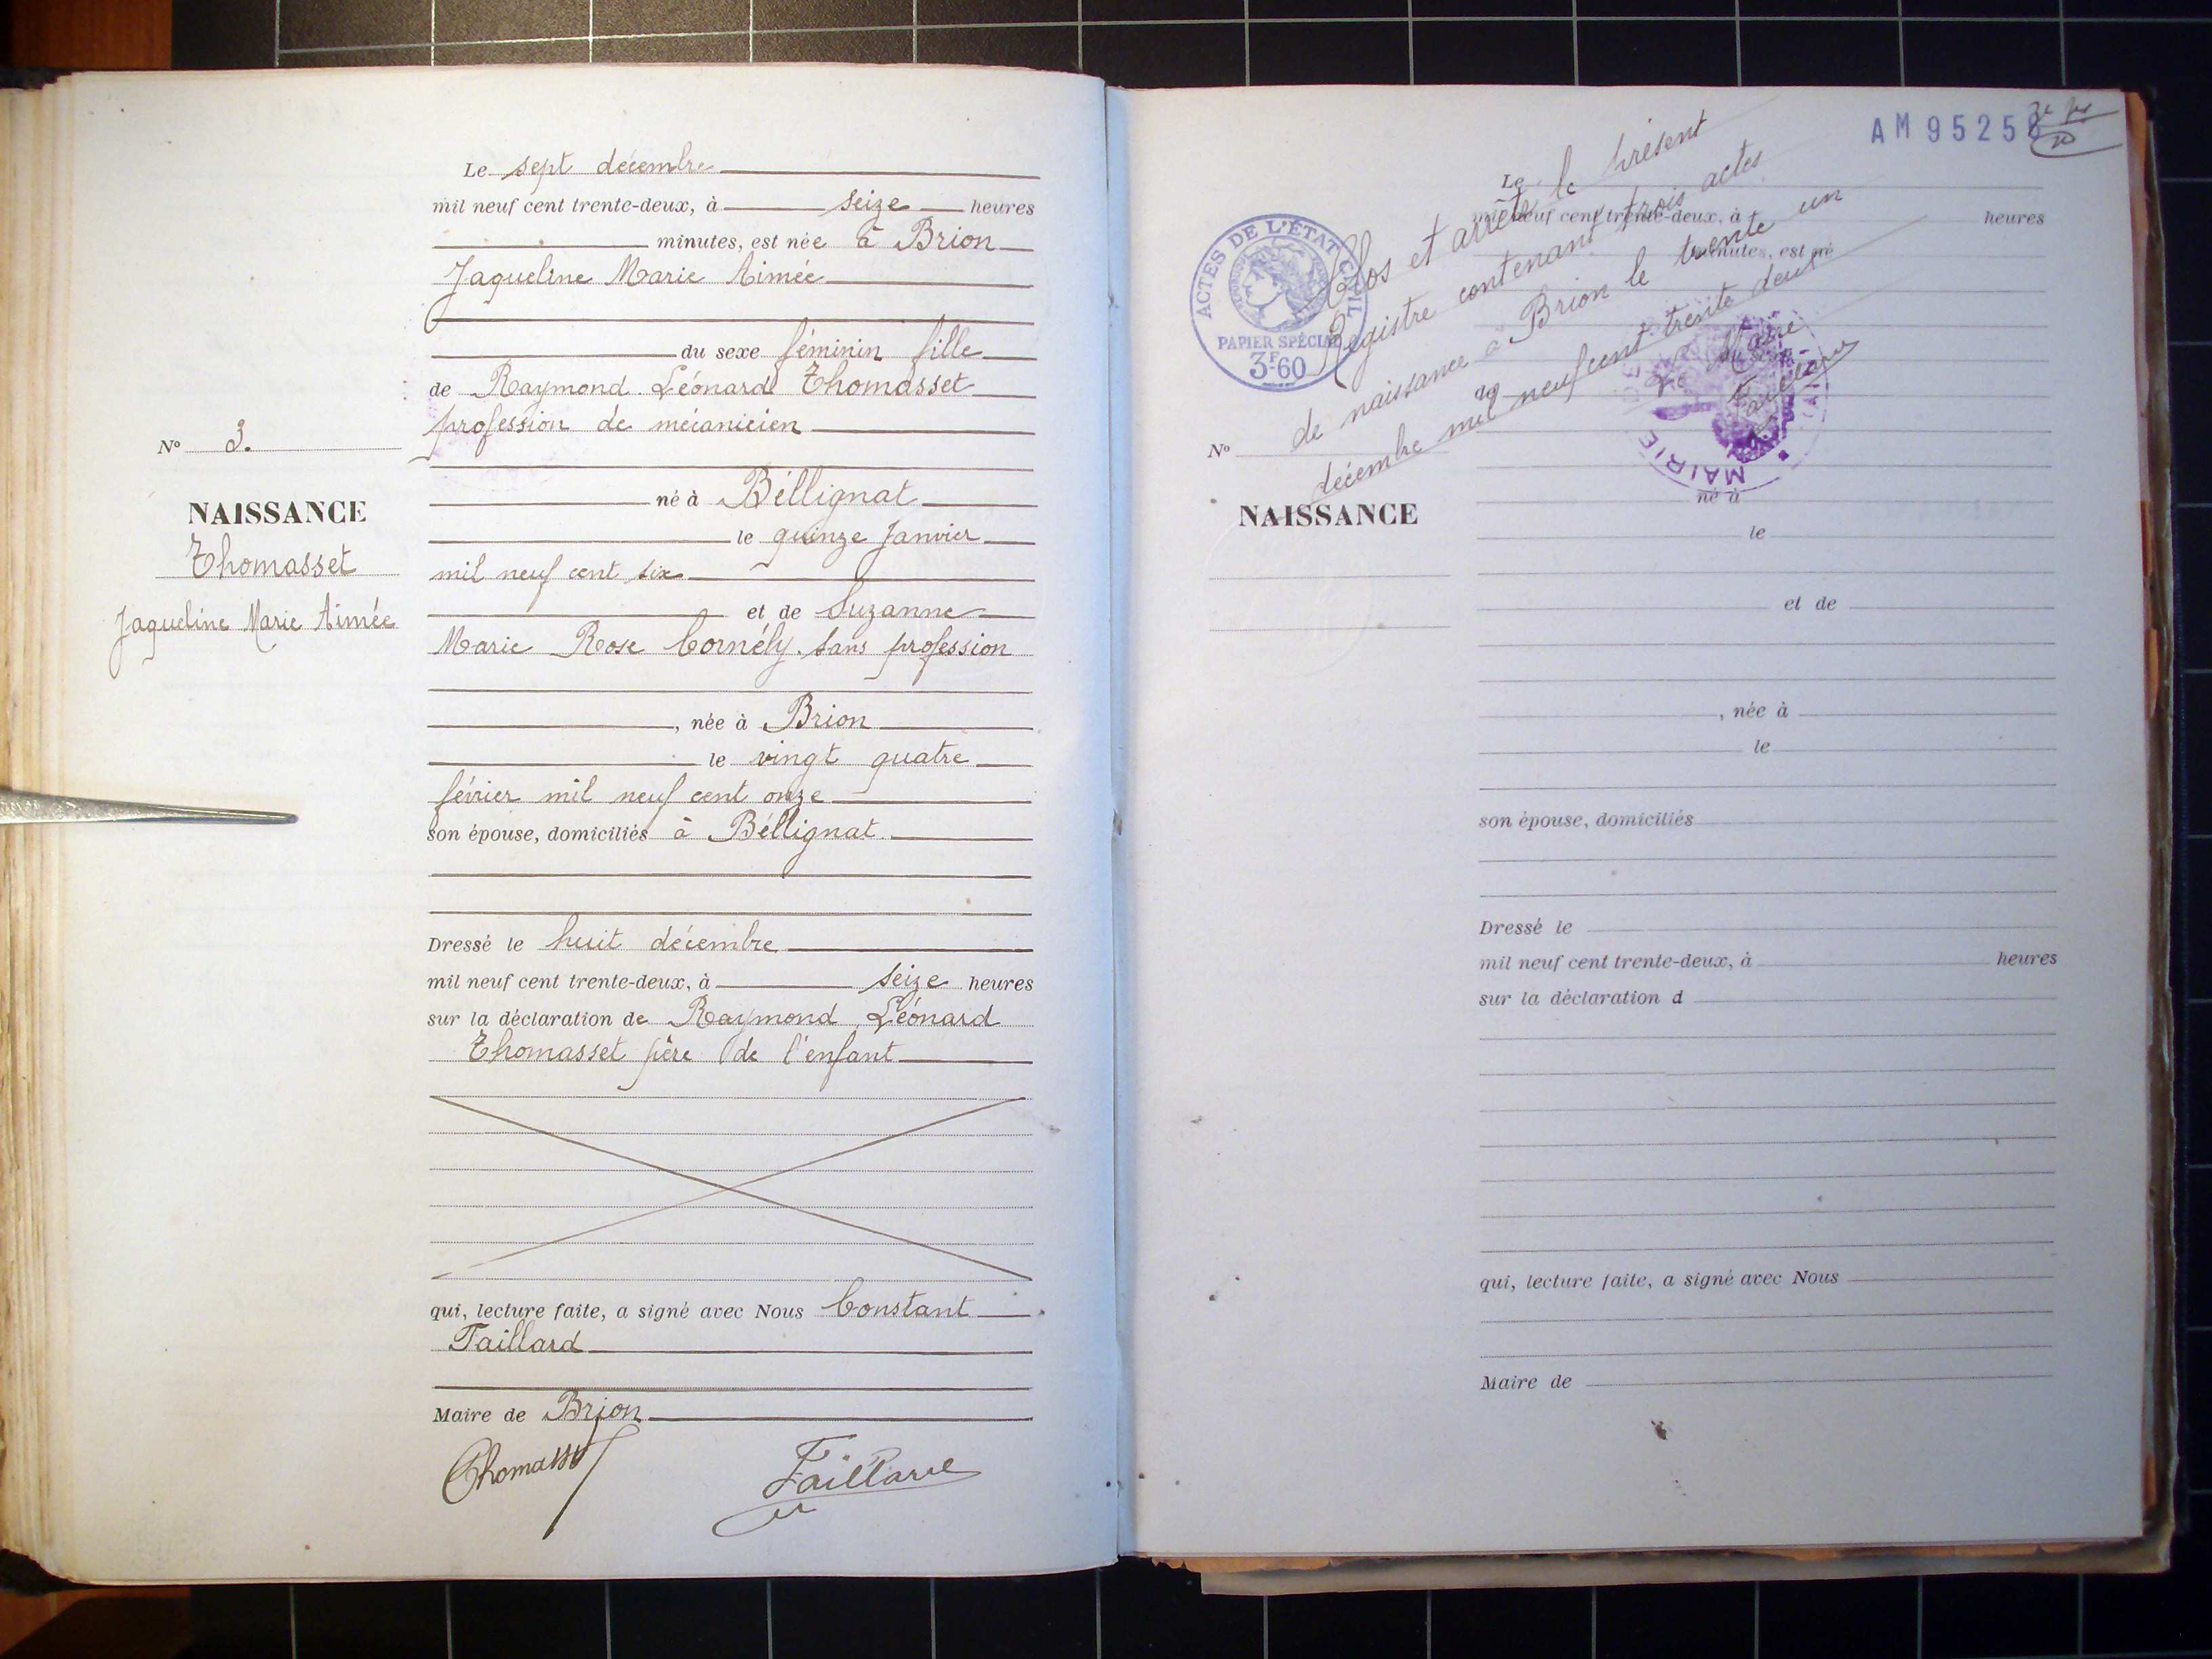 Le sept décembre
mil neuf cent trente-deux, à seize heures
minutes, est née à Brion
Jaqueline Marie Aimée
du sexe féminin fille
de Raymond Léonard Thomasset
profession de mécanicien
N° 3.
né à Béllignat
NAISSANCE
le quinze Janvier
Thomasset
mil neuf cent six
et de Suzanne
Jaqueline Marie Aimée
Marie Rose Cornély. sans profession
, née à Brion
le vingt quatre
février mil neuf cent onze
son épouse, domiciliés à Béllignat
Dressé le huit décembre
mil neuf cent trente-deux, à seize heures
sur la déclaration de Raymond Léonard
Thomasset père de l'enfant
qui, lecture faite, a signé avec Nous Constant
Taillard
Maire de Brion
Thomasset
Taillard
AM 9525
Clos et arrêté le présent
Registre contenant trois actes
de naissance à Brion le trente un
décembre mil neuf cent trente deux
Le Maire
Taillard
ACTES DE L'ÉTAT CIVIL
PAPIER SPÉCIAL
3F60
MAIRIE DE
Le
mil neuf cent trente-deux, à heures
minutes, est né
de
N°
né à
NAISSANCE
le
et de
, née à
le
son épouse, domiciliés
Dressé le
mil neuf cent trente-deux, à heures
sur la déclaration d
qui, lecture faite, a signé avec Nous
Maire de